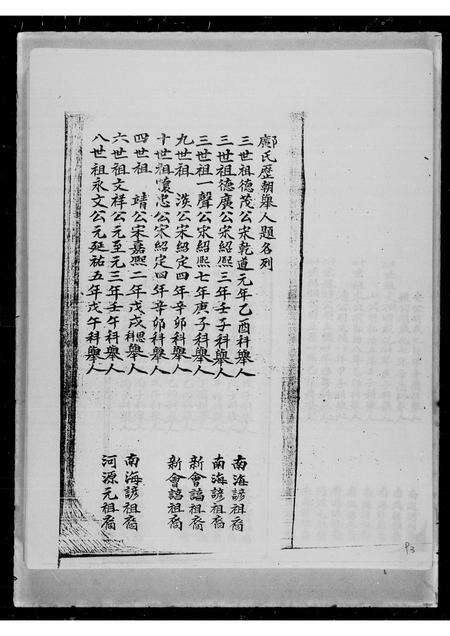 鄺氏歷朝舉人題名列
三世祖德茂公宋乾道元年乙酉科舉人 南海諺祖裔
三世祖德廣公宋紹熙三年壬子科舉人 南海諺祖裔
三世祖一聲公宋紹熙七年庚子科舉人 新會諡祖裔
九世祖 漢公宋紹定四年辛卯科舉人 南海諺祖裔
十世祖懷忠公宋紹定四年辛卯科舉人 新會諡祖裔
四世祖 靖公宋嘉熙二年戊戌科恩舉人
六世祖文祥公元至元三年壬午科舉人 南海諺祖裔
八世祖永文公元延祐五年戊午科舉人 河源元祖裔
93